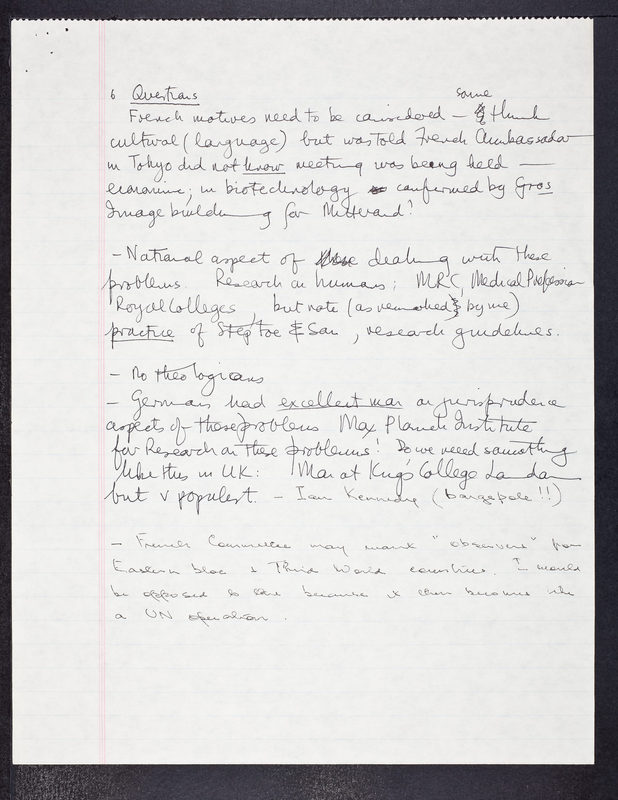 6 Questions
some
French motives need to be considered – I think
cultural (language) but was told French Ambassador
in Tokyo did not know meeting was being held —
economic; in biotechnology confirmed by Gros
Image building for Mitterand?
– National aspect of dealing with these
problems. Research on humans; MRC, Medical Profession
Royal Colleges, but note (as remarked by me)
practice of Steptoe & Son, research guidelines.
– No theologians
– Germans had excellent man on jurisprudence
aspects of these problems Max Planck Institute
for Research on these problems! Do we need something
like this in UK: Man at King's College London
but v populist. – Ian Kennedy (bargepole!!)
– French Committee may want "observers" from
Eastern bloc & Third World countries. I would
be opposed to this because it then becomes like
a UN operation.